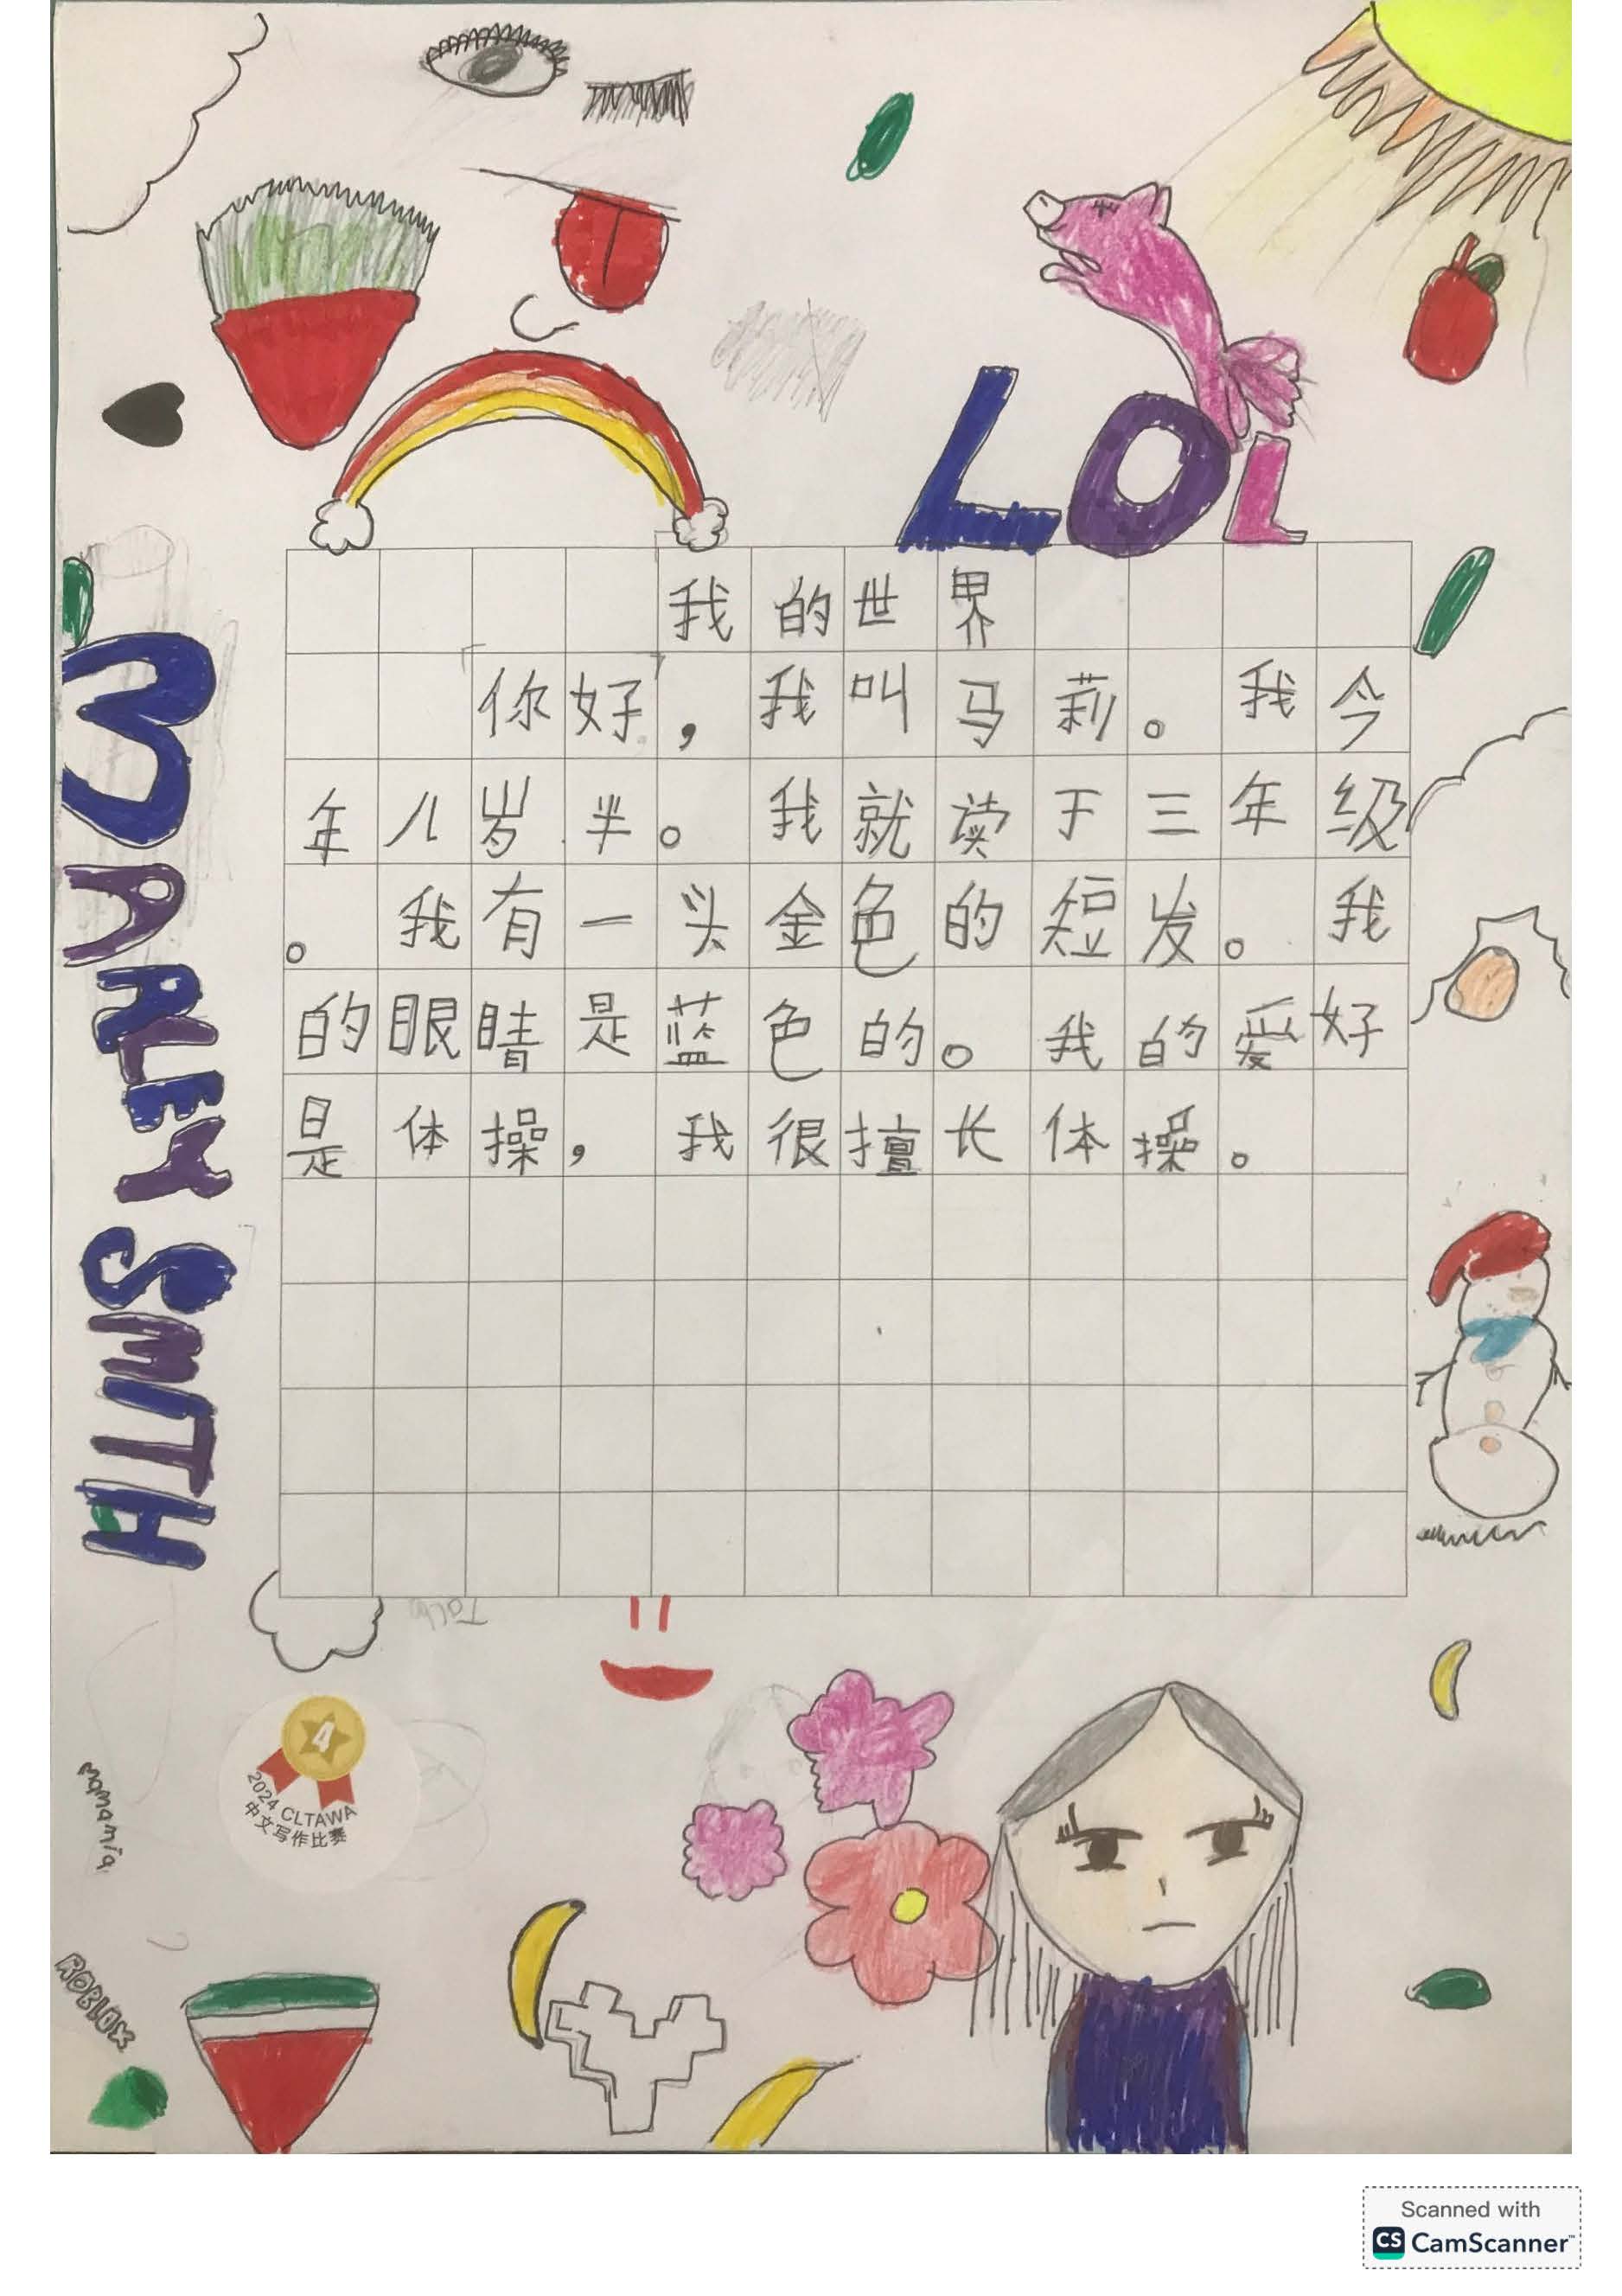 LOL
我的世界
你好，我叫马莉。我今
年八岁半。我就读于三年级
。我有一头金色的短发。我
的眼睛是蓝色的。我的爱好
是体操，我很擅长体操。
MANLEY SMITH
4
2024 CLTAWA
中文写作比赛
mamamia
ROBLOX
Scanned with
CS CamScanner™